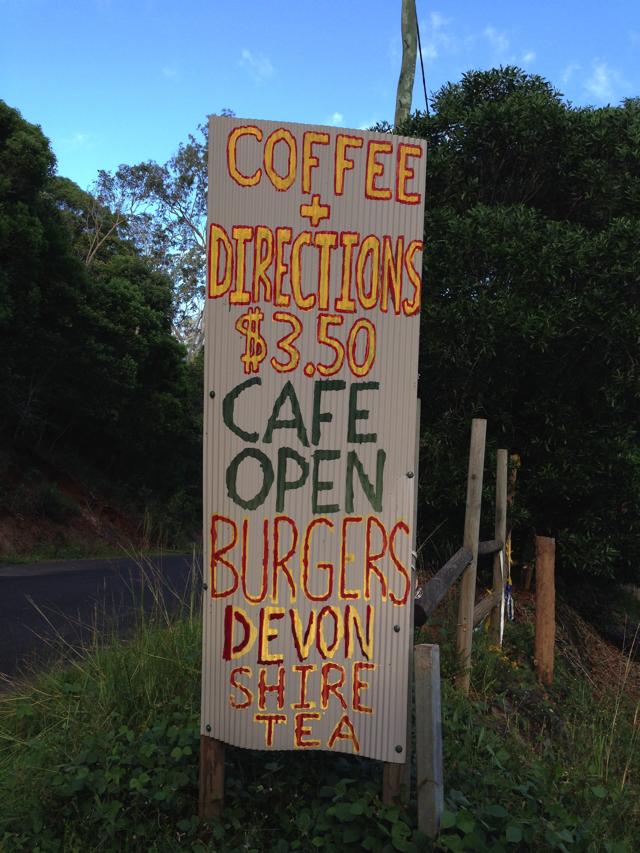 COFFEE
+
DIRECTIONS
$3.50
CAFE
OPEN
BURGERS
DEVON
SHIRE
TEA